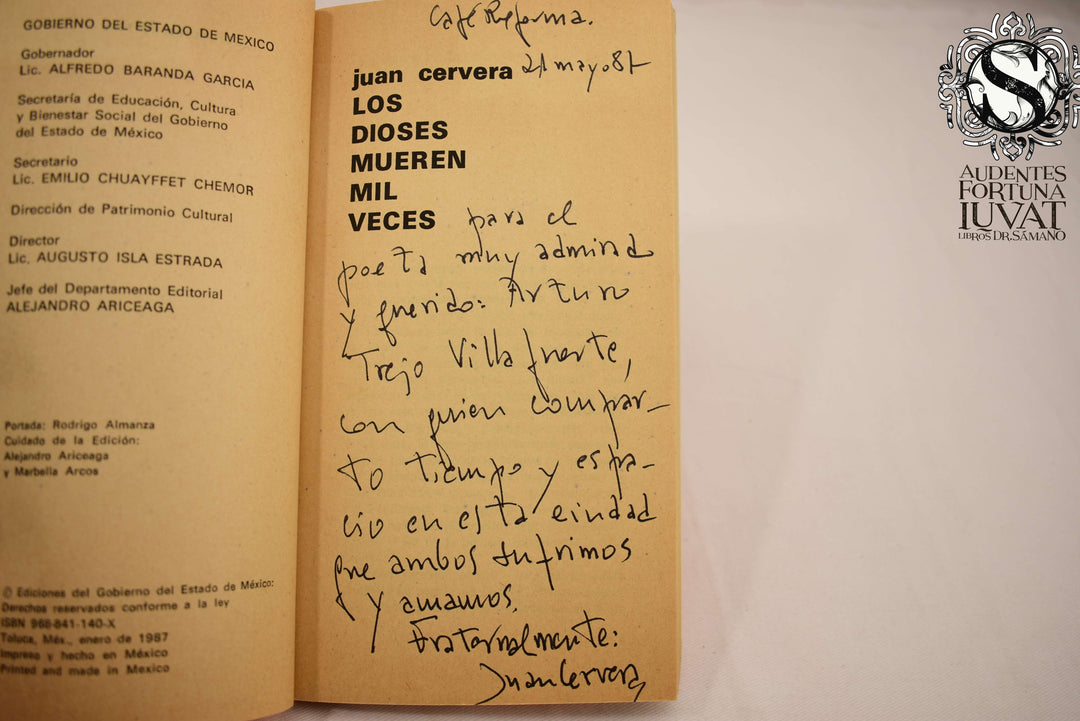 GOBIERNO DEL ESTADO DE MEXICO
Gobernador
Lic. ALFREDO BARANDA GARCIA
Secretaría de Educación, Cultura
y Bienestar Social del Gobierno
del Estado de México
Secretario
Lic. EMILIO CHUAYFFET CHEMOR
Dirección de Patrimonio Cultural
Director
Lic. AUGUSTO ISLA ESTRADA
Jefe del Departamento Editorial
ALEJANDRO ARICEAGA
Portada: Rodrigo Almanza
Cuidado de la Edición:
Alejandro Ariceaga
y Marbella Arcos
© Ediciones del Gobierno del Estado de México:
Derechos reservados conforme a la ley
ISBN 968-841-140-X
Toluca, Méx., enero de 1987
Impreso y hecho en México
Printed and made in Mexico
Café Reforma.
juan cervera 21 mayo 87
LOS
DIOSES
MUEREN
MIL
VECES para el
poeta muy admirad
y querido: Arturo
Trejo Villafuerte,
con quien compar-
to tiempo y espa-
cio en esta ciudad
que ambos sufrimos
y amamos.
Fraternalmente:
Juan Cervera
S
AUDENTES
FORTUNA
IUVAT
LIBROS DR. SÁMANO